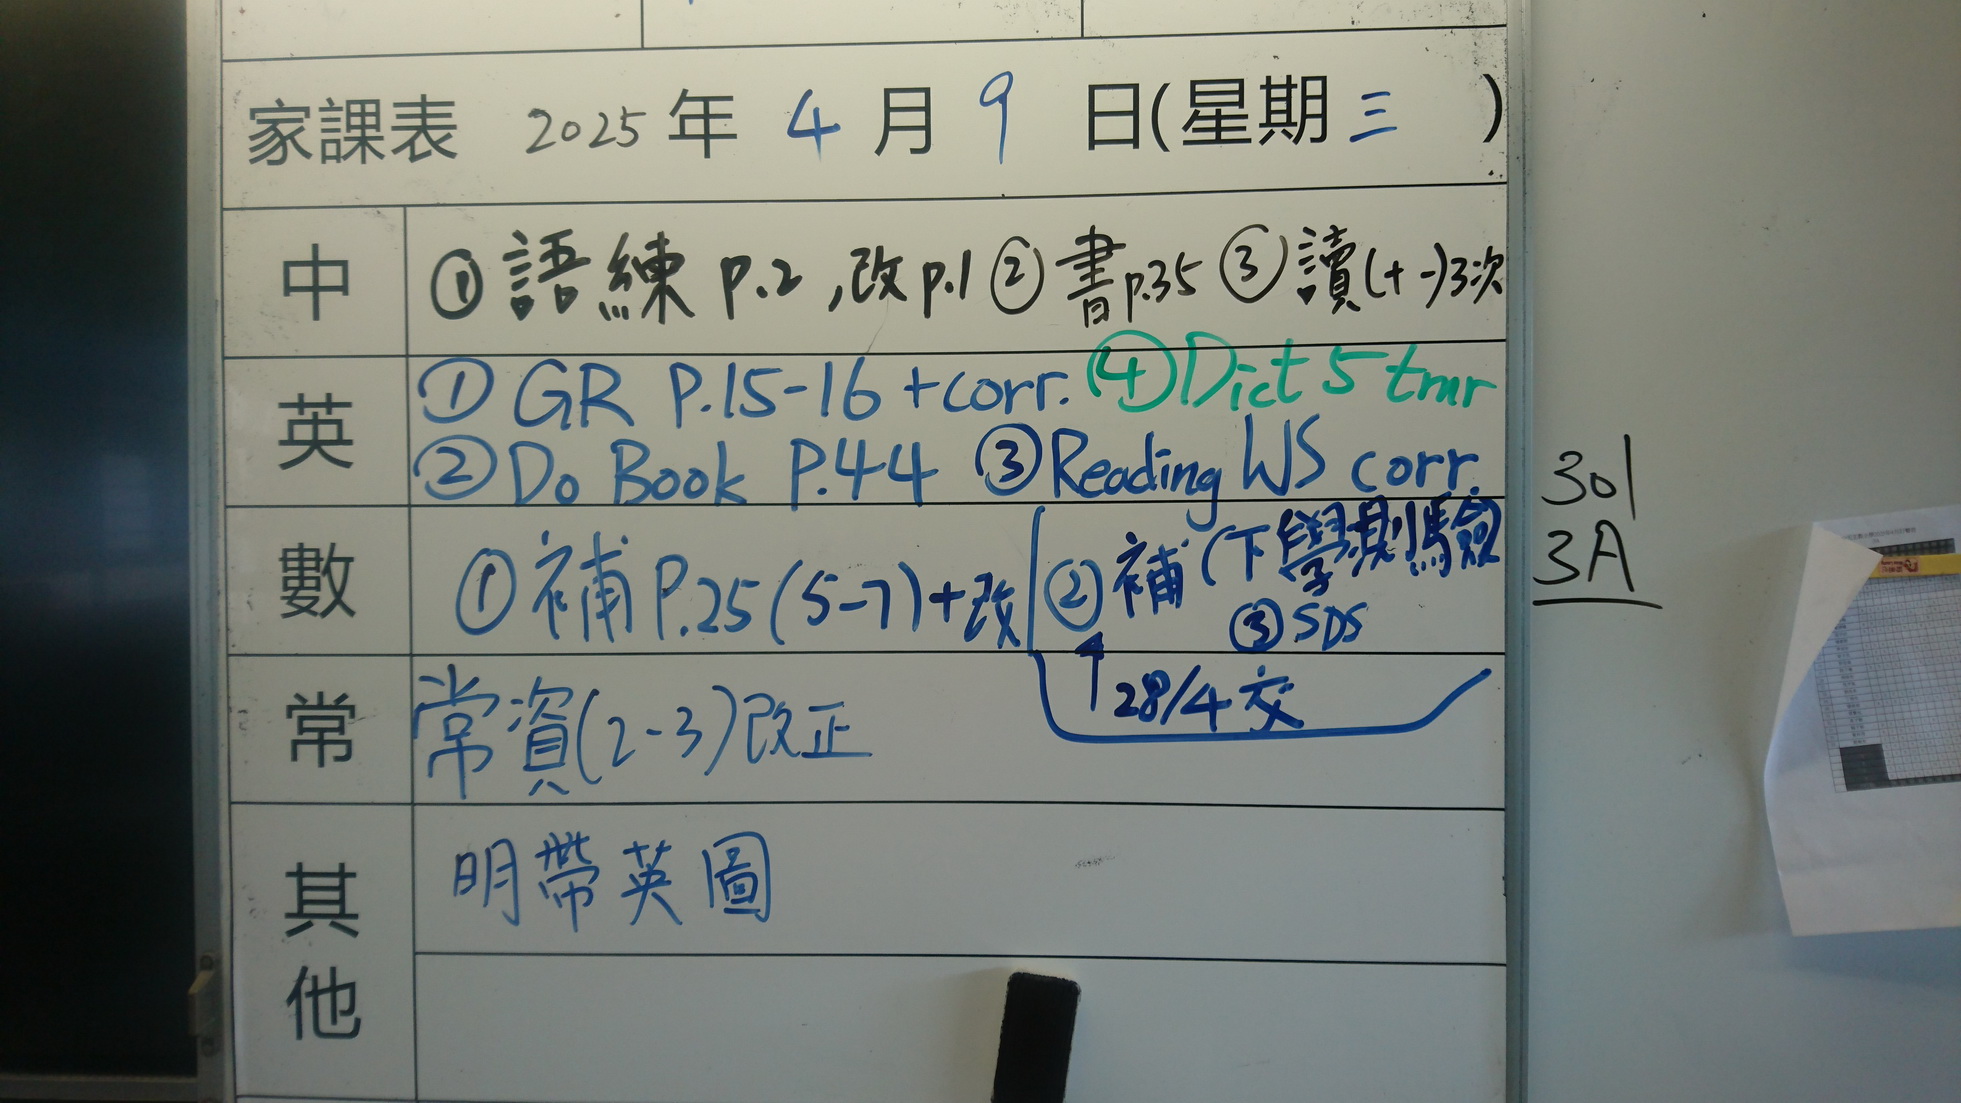 家課表 2025 年 4 月 9 日(星期 三 )
中 ① 語練 p.2 , 改 p.1 ② 書 p.35 ③ 讀(十一)3次
英 ① GR P.15-16 + corr. ④ Dict 5 tmr
② Do Book P.44 ③ Reading WS corr.
數 ① 補 P.25 (5-7) + 改 ② 補 (下學測驗
③ SDS
↑ 28/4 交
常 常資(2-3)改正
其他 明帶英圖
301
3A